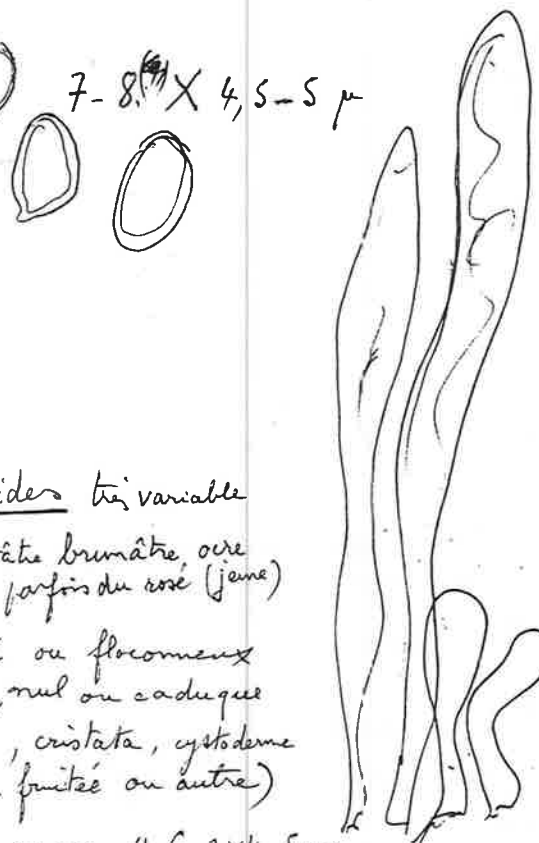 7-8 X 4,5-5 µ
ides très variable
âtre brunâtre, ocre
parfois du rosé (jeune)
ou floconneux
nul ou caduque
, cristata, cystoderme
fruitée ou autre)